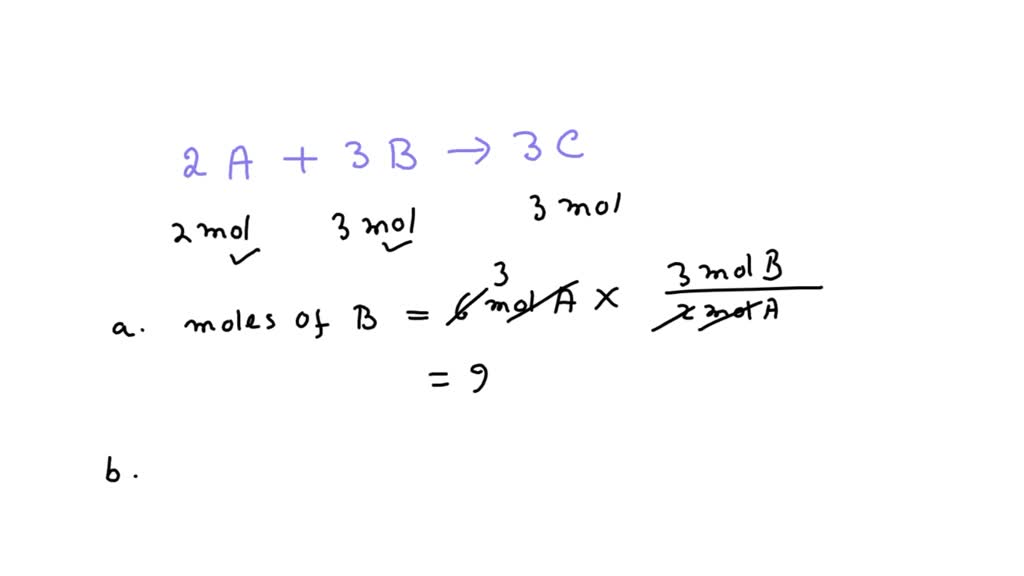 2 A + 3 B → 3 C
2 mol 3 mol 3 mol
3
a. moles of B = 6 mol A × 3 mol B / 2 mol A
= 9
b.